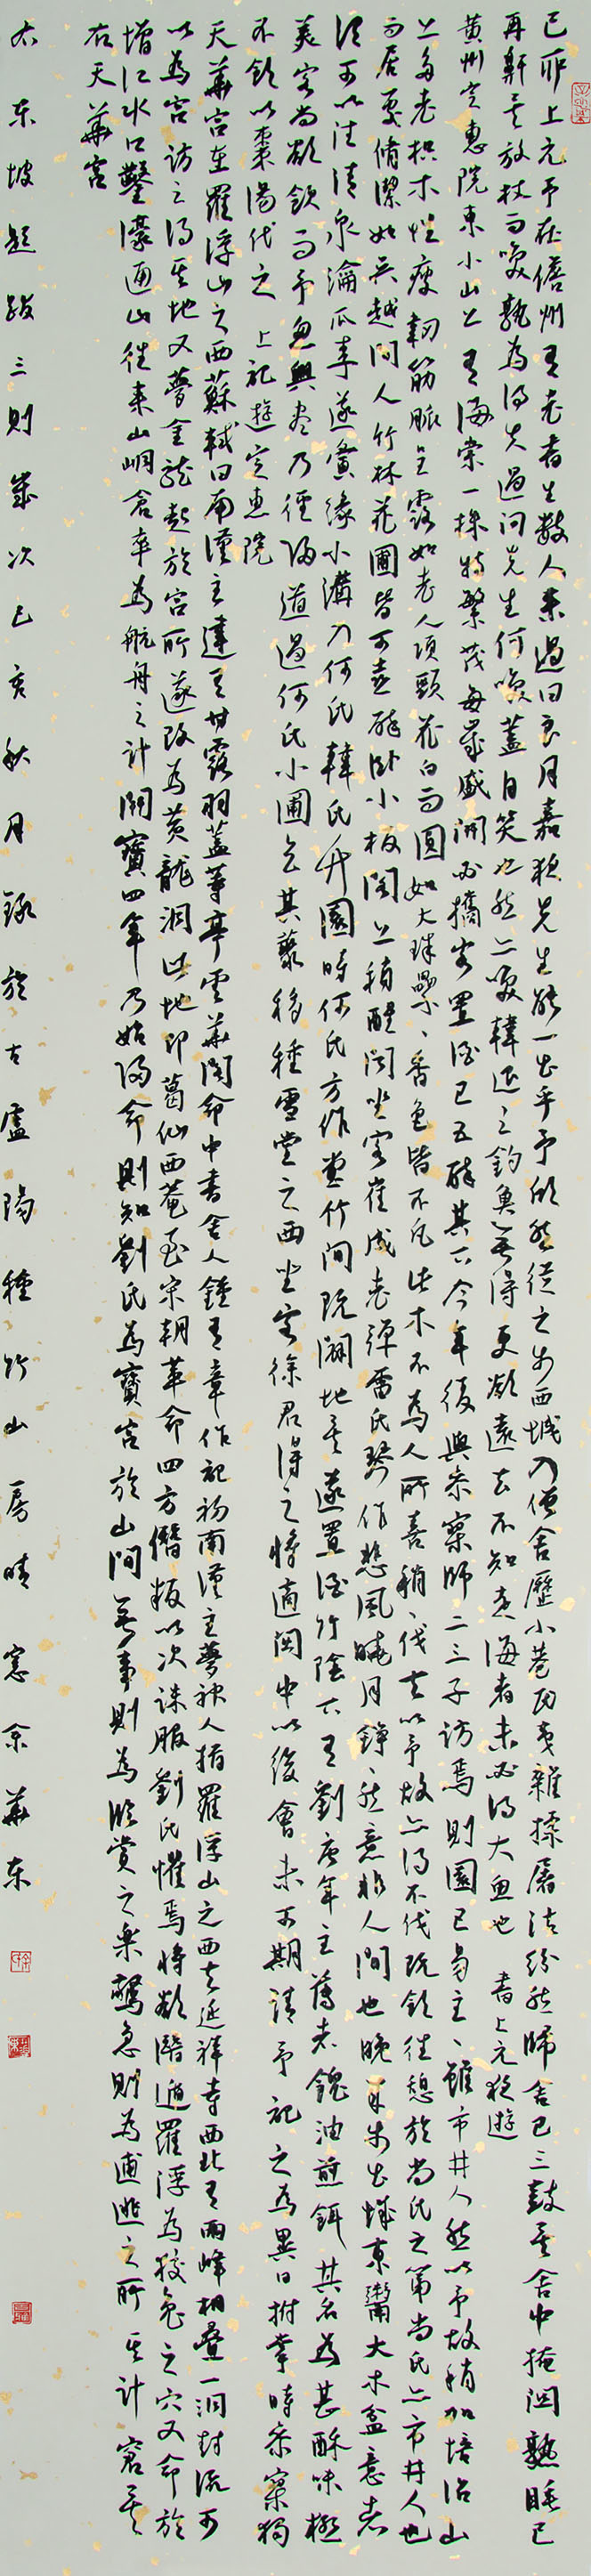 己卯上元予在儋州有老書生數人來過曰良月嘉夜先生能一出乎予欣然從之步西城入僧舍歷小巷民夷雜揉屠沽紛然歸舍已三鼓矣舍中掩關熟睡已
再鼾矣放杖而笑孰為得失過問先生何笑蓋自笑也然亦笑韓退之釣魚無得更欲遠去不知走海者未必得大魚也 書上元夜遊
黃州定惠院東小山上有海棠一株特繁茂每歲盛開必攜客置酒已五醉其下今年復與參寥師二三子訪焉則園已易主主雖市井人然以予故稍加培治山
上多老枳木性瘦韌筋脈呈露如老人項頸花白而圓如大珠纍纍香色皆不凡此木不為人所喜稍稍伐去以予故亦得不伐既飲往憩於尚氏之第尚氏亦市井人也
而居處修潔如吳越間人竹林花圃皆可喜醉臥小板閣上稍醒聞坐客崔成老彈雷氏琴作悲風曉月錚錚然意非人間也晚乃步出城東鬻大木盆意者
謂可以注清泉瀹瓜李遂夤緣小溝入何氏韓氏竹園時何氏方作堂竹間既闢地矣遂置酒竹陰下有劉唐年主簿者餽油煎餌其名為甚酥味極
美客尚欲飲而予忽興盡乃徑歸道過何氏小圃乞其藂橘移種雪堂之西坐客徐君得之將適閩中以後會未可期請予記之為異日拊掌時參寥獨
不飲以棗湯代之 上記遊定惠院
天華宮在羅浮山之西蘇軾曰南漢主建有甘露羽蓋等亭雲華閣命中書舍人鍾有章作記初南漢主夢神人指羅浮山之西去延祥寺西北有兩峰相疊一洞對流可
以為宮訪之得其地又夢金龍起於宮所遂改為黃龍洞此地即葛仙西菴至宋朝革命四方僭叛以次誅服劉氏懼焉將欲潛遁羅浮為狡兔之穴又命於
增江水口鑿濠通山往來山峒倉卒為航舟之計開寶四年乃始歸命則知劉氏為寶宮於山間無事則為臨賞之樂警急則為逋逃之所其計窘矣
右天華宮
右東坡題跋三則歲次己亥秋月錄於古廬陽種竹山房晴窗余華東